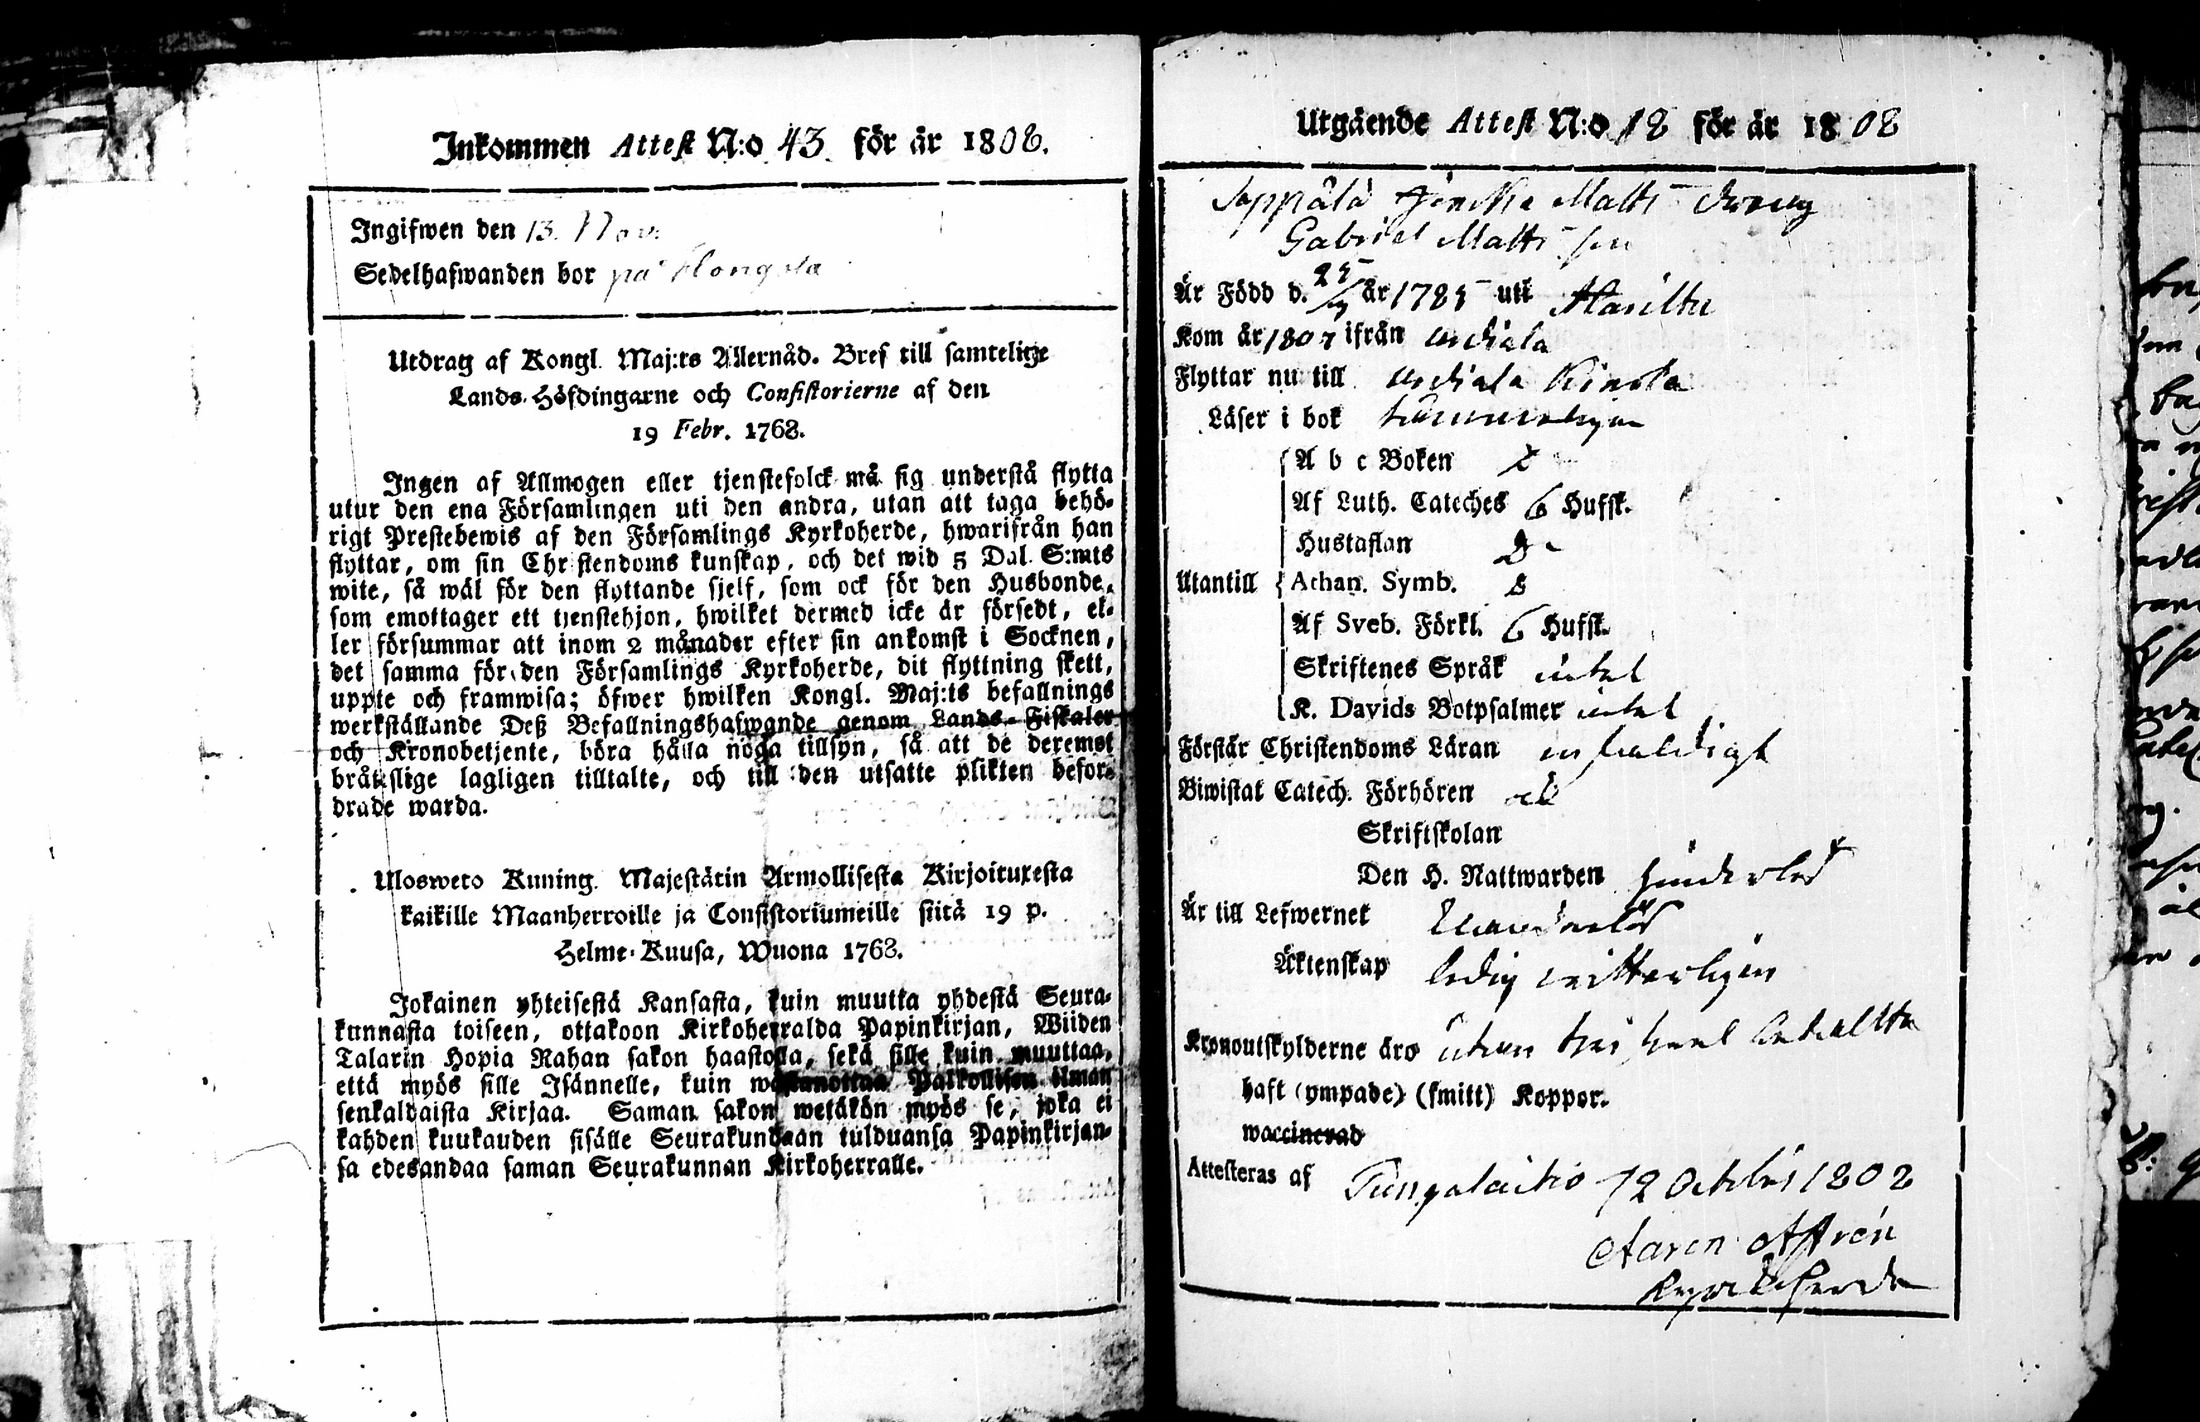 Inkommen Attest N:o 43 för år 1808.
Ingifwen den 13. Nov.
Sedelhafwanden bor på
Utdrag af Kongl. Maj:ts Allernåd. Bref till samtelige
Lands-Höfdingarne och Consistorierne af den
19 Febr. 1768.
Ingen af Allmogen eller tjenstefolck må sig understå flytta
utur den ena Församlingen uti den andra, utan att taga behö-
rigt Prestebewis af den Församlings Kyrkoherde, hwarifrån han
flyttar, om sin Christendoms kunskap, och det wid 5 Dal. S:mts
wite, så wäl för den flyttande sjelf, som ock för den Husbonde,
som emottager ett tjenstehjon, hwilket dermed icke är försedt, el-
ler försummar att inom 2 månader efter sin ankomst i Socknen,
det samma för den Församlings Kyrkoherde, dit flyttning skett,
uppte och framwisa; öfwer hwilken Kongl. Maj:ts befallnings
werkställande Deß Befallningshafwande genom Lands-Fiskaler
och Kronobetjente, böra hålla noga tillsyn, så att de deremot
bråtslige lagligen tilltalte, och till den utsatte plikten befor-
drade warda.
Ulosweto Kuning. Majestätin Armollisesta Kirjoituxesta
kaikille Maanherroille ja Consistoriumeille siitä 19 p.
Helme-Kuusa, Wuona 1768.
Jokainen yhteisestä Kansasta, kuin muutta yhdestä Seura-
kunnasta toiseen, ottakoon Kirkoherralda Papinkirjan, Wiiden
Talarin Hopia Rahan sakon haastolla, sekä sille kuin muuttaa,
että myös sille Isännelle, kuin Palkollisen ilman
senkaldaista Kirjaa. Saman sakon wetäkön myös se, joka ei
kahden kuukauden sisälle Seurakundaan tulduansa Papinkirjan-
sa edesandaa saman Seurakunnan Kirkoherralle.
Utgående Attest N:o 18 för år 1808
Matts dräng
Gabriel Matts son
Är Född d. 25 år 1785 uti
Kom år 1807 ifrån Urdiala
Flyttar nu till Urdiala
Läser i bok
A b c Boken
Af Luth. Cateches 6 Hufst.
Hustaflan
Utantill Athan. Symb.
Af Sveb. Förkl. 6 Hufst.
Skriftenes Språk intet
K. Davids Botpsalmer intet
Förstår Christendoms Läran enfaldigt
Biwistat Catech. Förhören
Skriftskolan
Den H. Nattwarden
Är till Lefwernet
Äktenskap ledig
Kronoutskylderne äro
haft (ympade) (smitt) Koppor.
waccinerad
Attesteras af 12 Octobris 1808
Aaron
Kyrkoherde